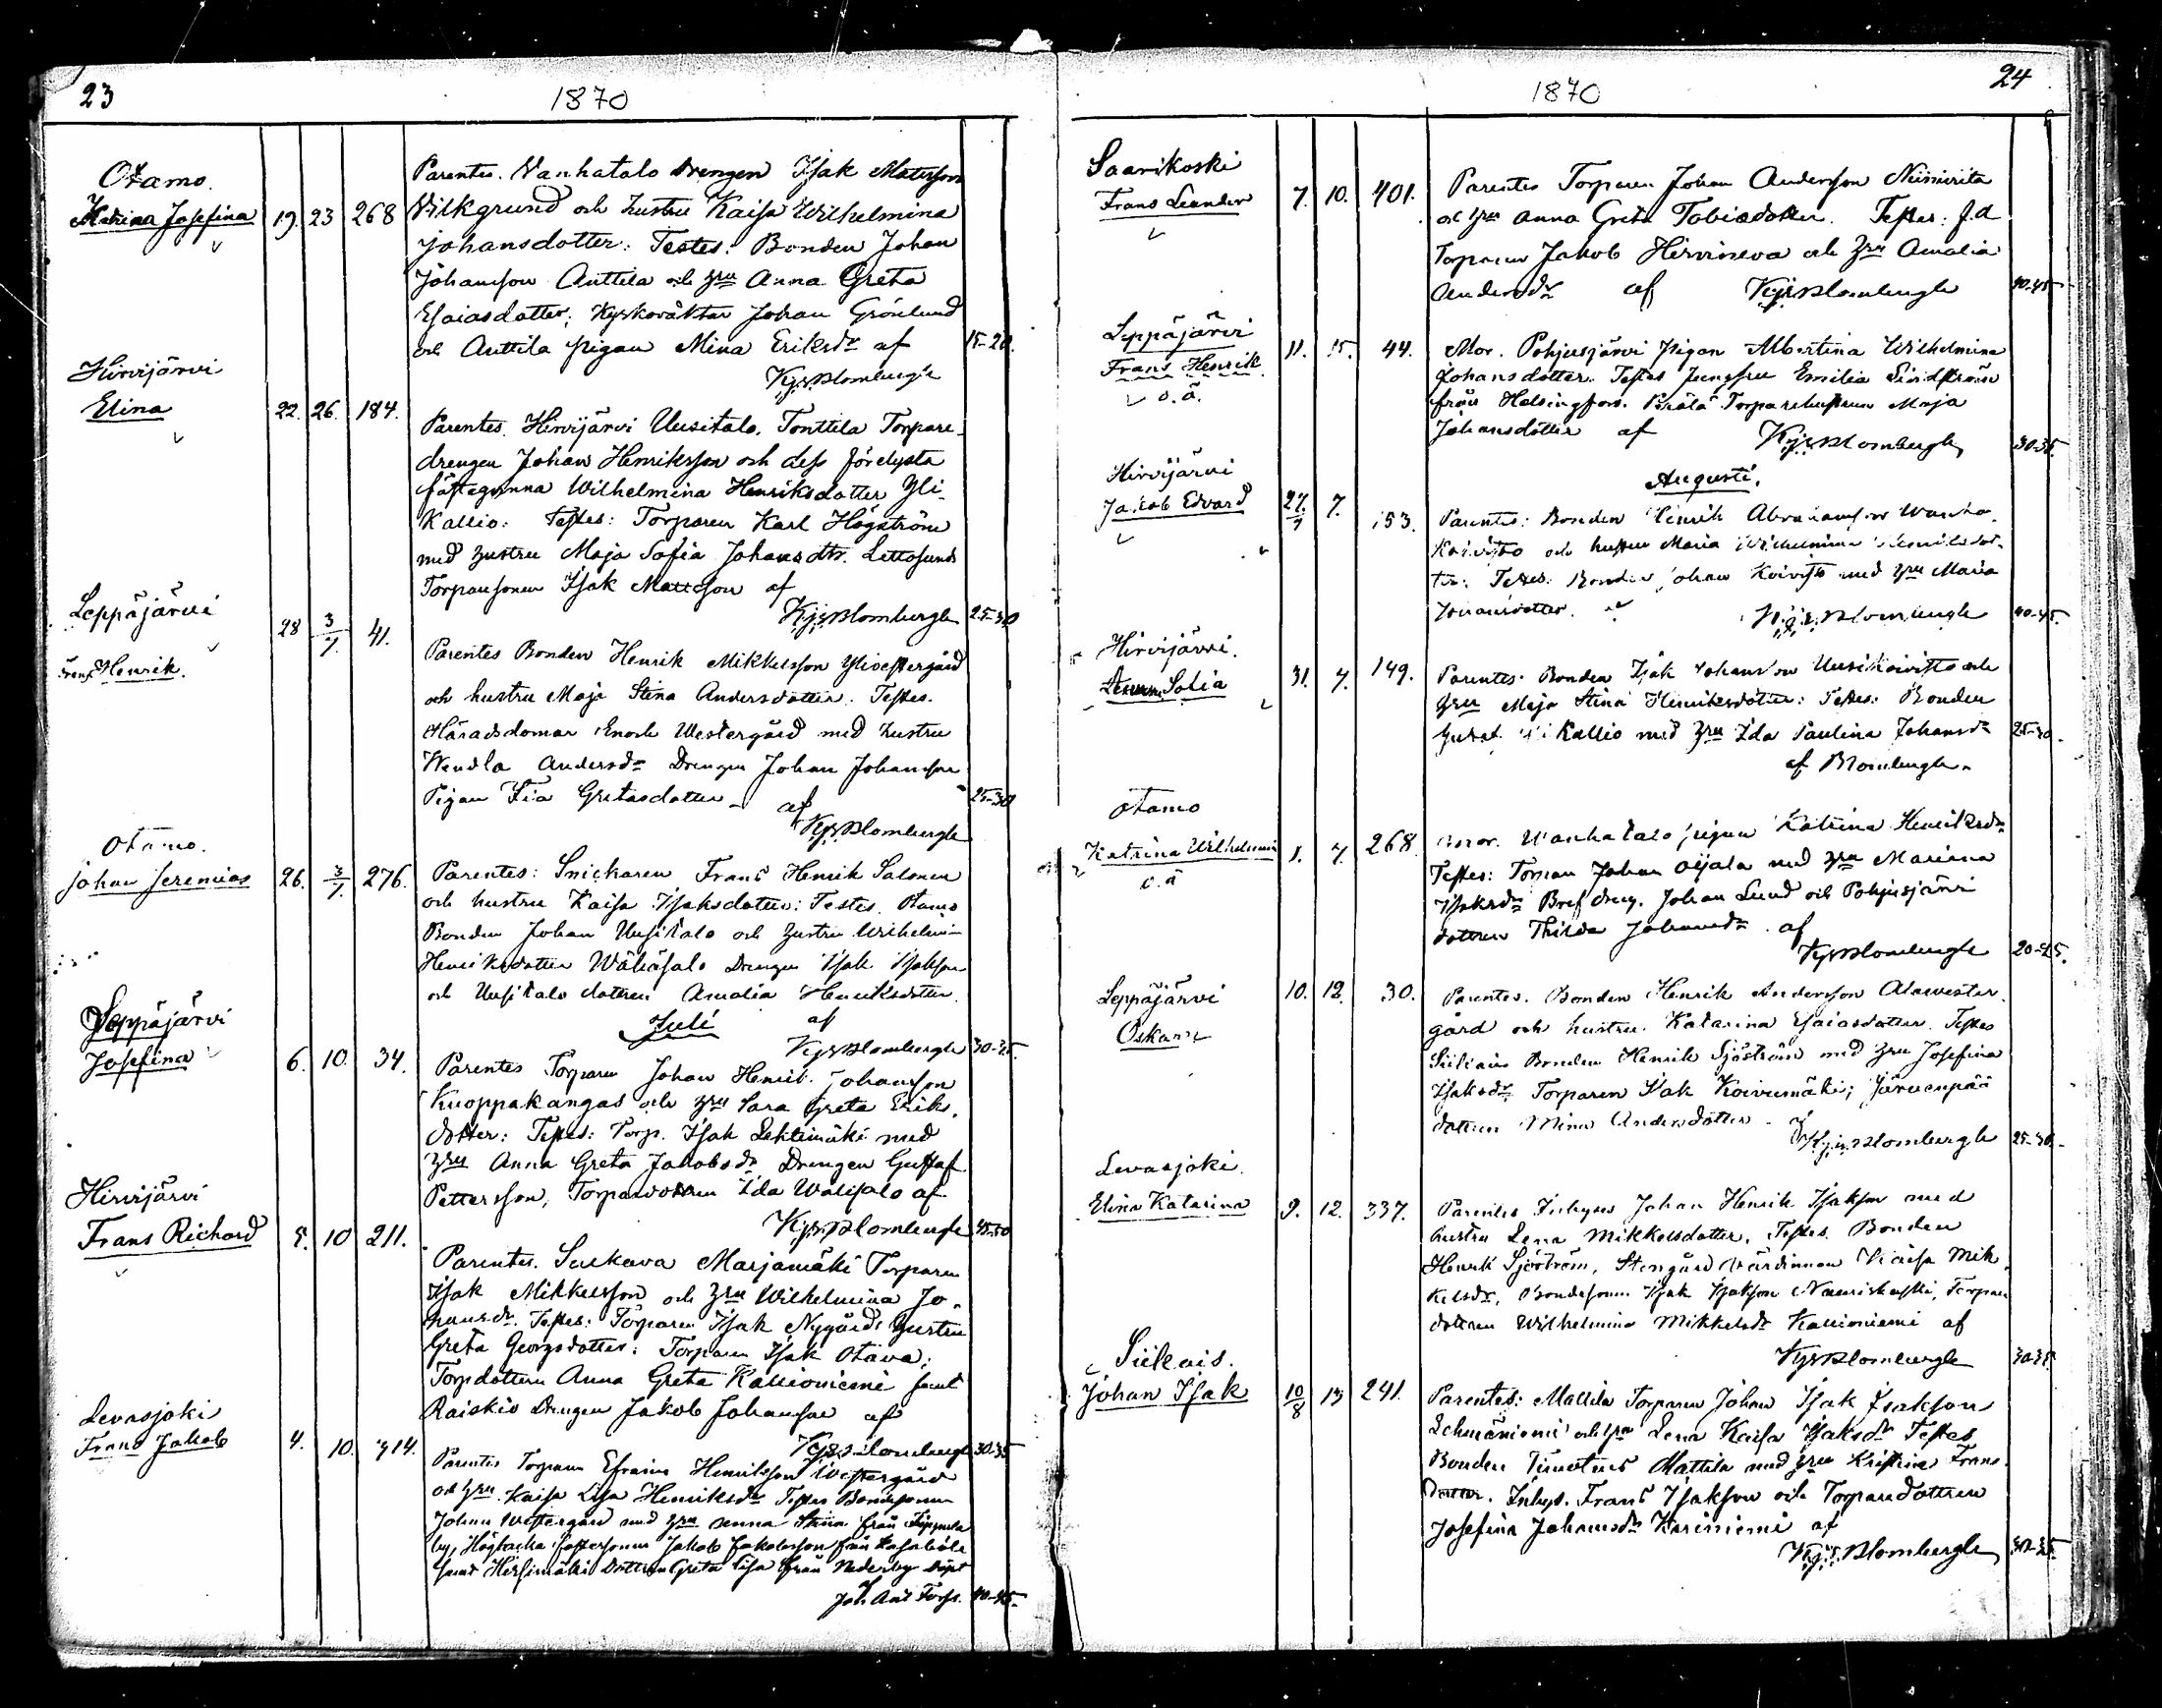 23
1870
Otamo.
Katrina Josefina 19. 23 268
Parentes. Vanhatalo Drengen Isak Matsson
Vilkgrund och hustru Kaisa Wilhelmina
Johansdotter: Testes: Bonden Johan
Johansson Anttila och hru Anna Greta
Esaiasdotter; Kyrkoväktar Johan Grönlund
och Anttila pigan Mina Eriksdr af
Kjrblombergh 15-20.
Hirvijärvi
Elina 22. 26. 184.
Parentes. Hirvijärvi Uusitalo. Tonttila Torpare-
drengen Johan Henriksson och dess förelysta
fästeqvinna Wilhelmina Henriksdotter Yli-
Kallio: Testes: Torparen Karl Högström
med hustru Maja Sofia Johansdtr.
Torparsonen Isak Mattsson af
Kjrblombergh 25-30
Leppäjärvi
Frans Henrik. 28 3/7. 41.
Parentes Bonden Henrik Mikkelsson Yliwestergård
och hustru Maja Stina Andersdotter. Testes.
Häradsdomar Enoch Westergård med hustru
Wendla Andersdr Drengen Johan Johansson
Pigan Fia Gretasdotter af
Kjrblombergh 25-30
Otamo.
Johan Jeremias 26. 3/7. 276.
Parentes: Snickaren Frans Henrik Salonen
och hustru Kaisa Isaksdotter: Testes. Otamo
Bonden Johan Uusitalo och hustru Wilhelmin
Henriksdotter Wähäsalo Drengen Isak Isaksson
och Uusitalo dottren Amalia Henriksdotter.
af
Kjrblombergh 30-35.
Juli
Leppäjärvi
Josefina 6. 10. 34.
Parentes Torparen Johan Henrik Johansson
Kuoppakangas och hru Sara Greta Eriks-
dotter: Testes: Torp. Isak Lehtimäki med
hru Anna Greta Jakobsdr Drengen Gustaf
Pettersson, Torparedottren Ida Walisalo af
Kjrblombergh 45-50
Hirvijärvi
Frans Richard 5. 10 211.
Parentes. Marjamäki Torparen
Isak Mikkelsson och hru Wilhelmina Jo-
hansdr. Testes: Torparen Isak Nygårds hustru
Greta Georgsdotter: Torparen Isak Otava;
Torpdottren Anna Greta Kallioniemi samt
Raiskio Drengen Jakob Johansson af
Kjrblombergh 30-35
Levasjoki
Frans Jakob 4. 10. 314.
Parentes Torparen Efraim Henriksson Westergård
och hru Kaisa Lisa Henriksdr Testes Bondesonen
Johan Westergård med hru Anna Stina från
by, Högbacka Jakob Jakobsson från
samt Hirsimäki Dottren Greta Lisa från Nederby Döpt
af Joh. Ant. Forss. 40-45-
24
1870
Saarikoski
Frans Leander 7. 10. 401.
Parentes Torparen Johan Andersson Niinivita
och hru Anna Greta Tobiasdotter. Testes: f.d
Torparen Jakob Hirvineva och hru Amalia
Andersdr af Kjrblombergh 40-45
Leppäjärvi
Frans Henrik 11. 15. 44.
o.ä.
Mor. Pohjusjärvi pigan Albertina Wilhelmina
Johansdotter. Testes Jungfru Emilia Lindström
från Helsingfors. Torparehustrun Maja
Johansdotter af Kjrblombergh 30-35.
Augusti.
Hirvijärvi
Jakob Edvard 27./7 7. 153.
Parentes: Bonden Henrik Abrahamsson Wanha
Koivisto och hustru Maria Wilhelmina Henriksdot-
ter: Testes: Bonden Johan Koivisto med hru Maria
Johansdotter. af Kjrblombergh 40-45.
Hirvijärvi.
Sofia 31. 7. 149.
Parentes: Bonden Isak Johansson Uusikoivisto och
hru Maja Stina Henriksdotter: Testes: Bonden
Gustaf Kallio med hru Ida Paulina Johansdr 25-30.
af Blombergh.
Otamo
Katrina Wilhelmin 1. 7. 268.
o.ä
Mor. Wanhatalo pigan Katrina Henriksdr
Testes: Torparen Johan Ojala med hru Mariana
Isaksdr dreng. Johan Lund och Pohjusjärvi
dottren Thilda Johansdr af
Kjrblombergh 20-25.
Leppäjärvi 10. 12. 30.
Oskar
Parentes. Bonden Henrik Andersson Alawester-
gård och hustru Katarina Esaiasdotter. Testes
Siikais Bonden Henrik Sjöström med hru Josefina
Isaksdr Torparen Isak Koivumäki; Järvenpää
dottren Mina Andersdotter af
Kjrblombergh 25-30.
Levasjoki.
Elina Katarina 9. 12. 337.
Parentes Inhyses Johan Henrik Isaksson med
hustru Lena Mikkelsdotter. Testes. Bonden
Henrik Sjöström, Stengård värdinnan Kaisa Mik-
kelsdr, Bondesonen Isak Isaksson, Torpare
dottren Wilhelmina Mikkelsdr Kallioniemi af
Kjrblombergh 30-35
Siikais.
Johan Isak 10/8 13 241.
Parentes: Mattila Torparen Johan Isak Isaksson
Lehmäniemi och hru Lena Kaisa Isaksdr Testes
Bonden Timoteus Mattila med hru Kristina Frans
Dotter. Inhys. Frans Isaksson och Torparedottren
Josefina Johansdr Kariniemi af
Kjrblombergh 30-35.